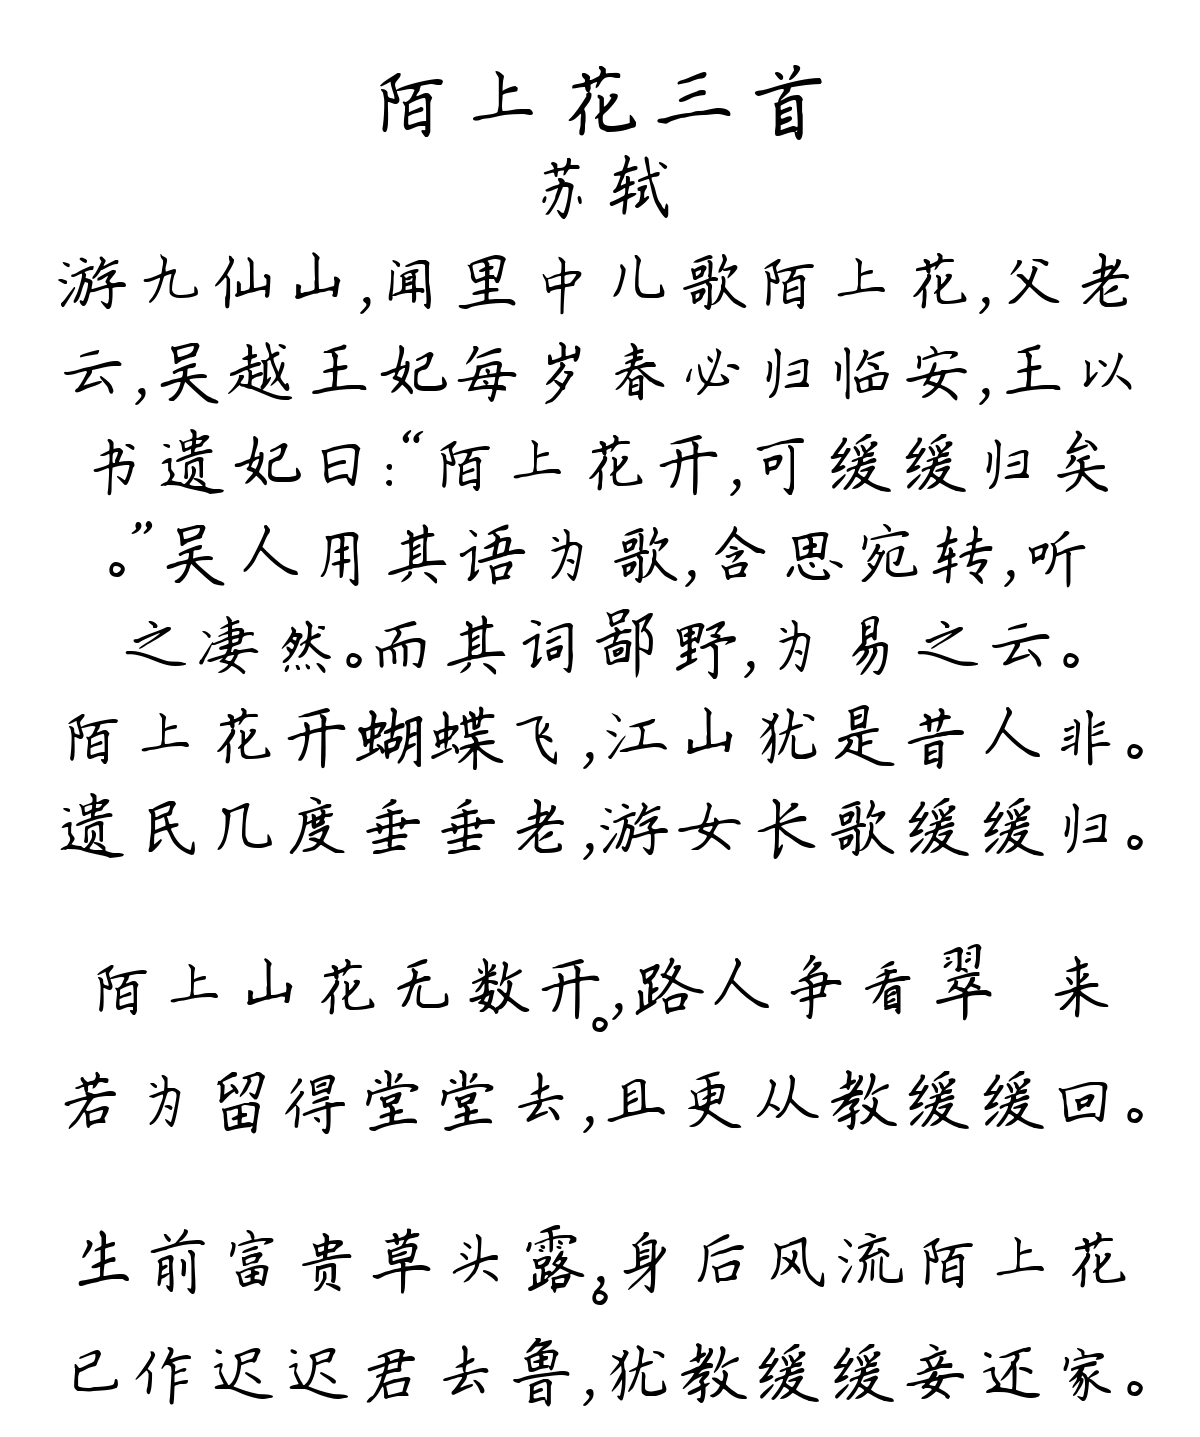 陌上花三首
苏轼
游九仙山,闻里中儿歌陌上花,父老
云,吴越王妃每岁春必归临安,王以
书遗妃曰:“陌上花开,可缓缓归矣
。”吴人用其语为歌,含思宛转,听
之凄然。而其词鄙野,为易之云。
陌上花开蝴蝶飞,江山犹是昔人非。
遗民几度垂垂老,游女长歌缓缓归。
陌上山花无数开,路人争看翠 来
。
若为留得堂堂去,且更从教缓缓回。
生前富贵草头露,身后风流陌上花
。
已作迟迟君去鲁,犹教缓缓妾还家。